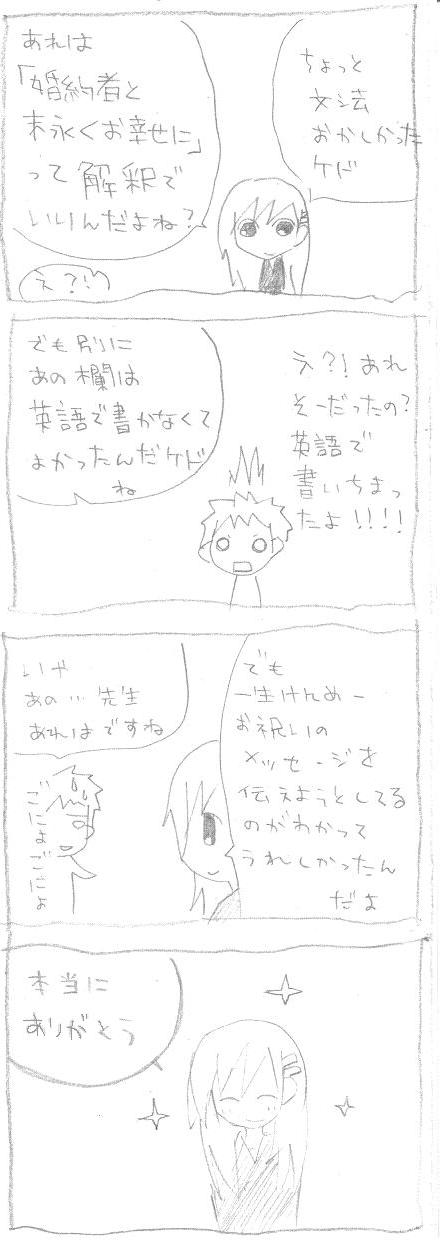 ちょっと
文法
おかしかった
ケド
あれは
「婚約者と
末永くお幸せに」
って解釈で
いいんだよね?
え?!
え?!あれ
そーだったの?
英語で
書いちまっ
たよ!!!!
でも別に
あの欄は
英語で書かなくて
よかったんだケド
ね
でも
一生けんめー
お祝いの
メッセージを
伝えようとしてる
のがわかって
うれしかったん
だよ
いや
あの…先生
あれはですね
ごにょごにょ
本当に
ありがとう